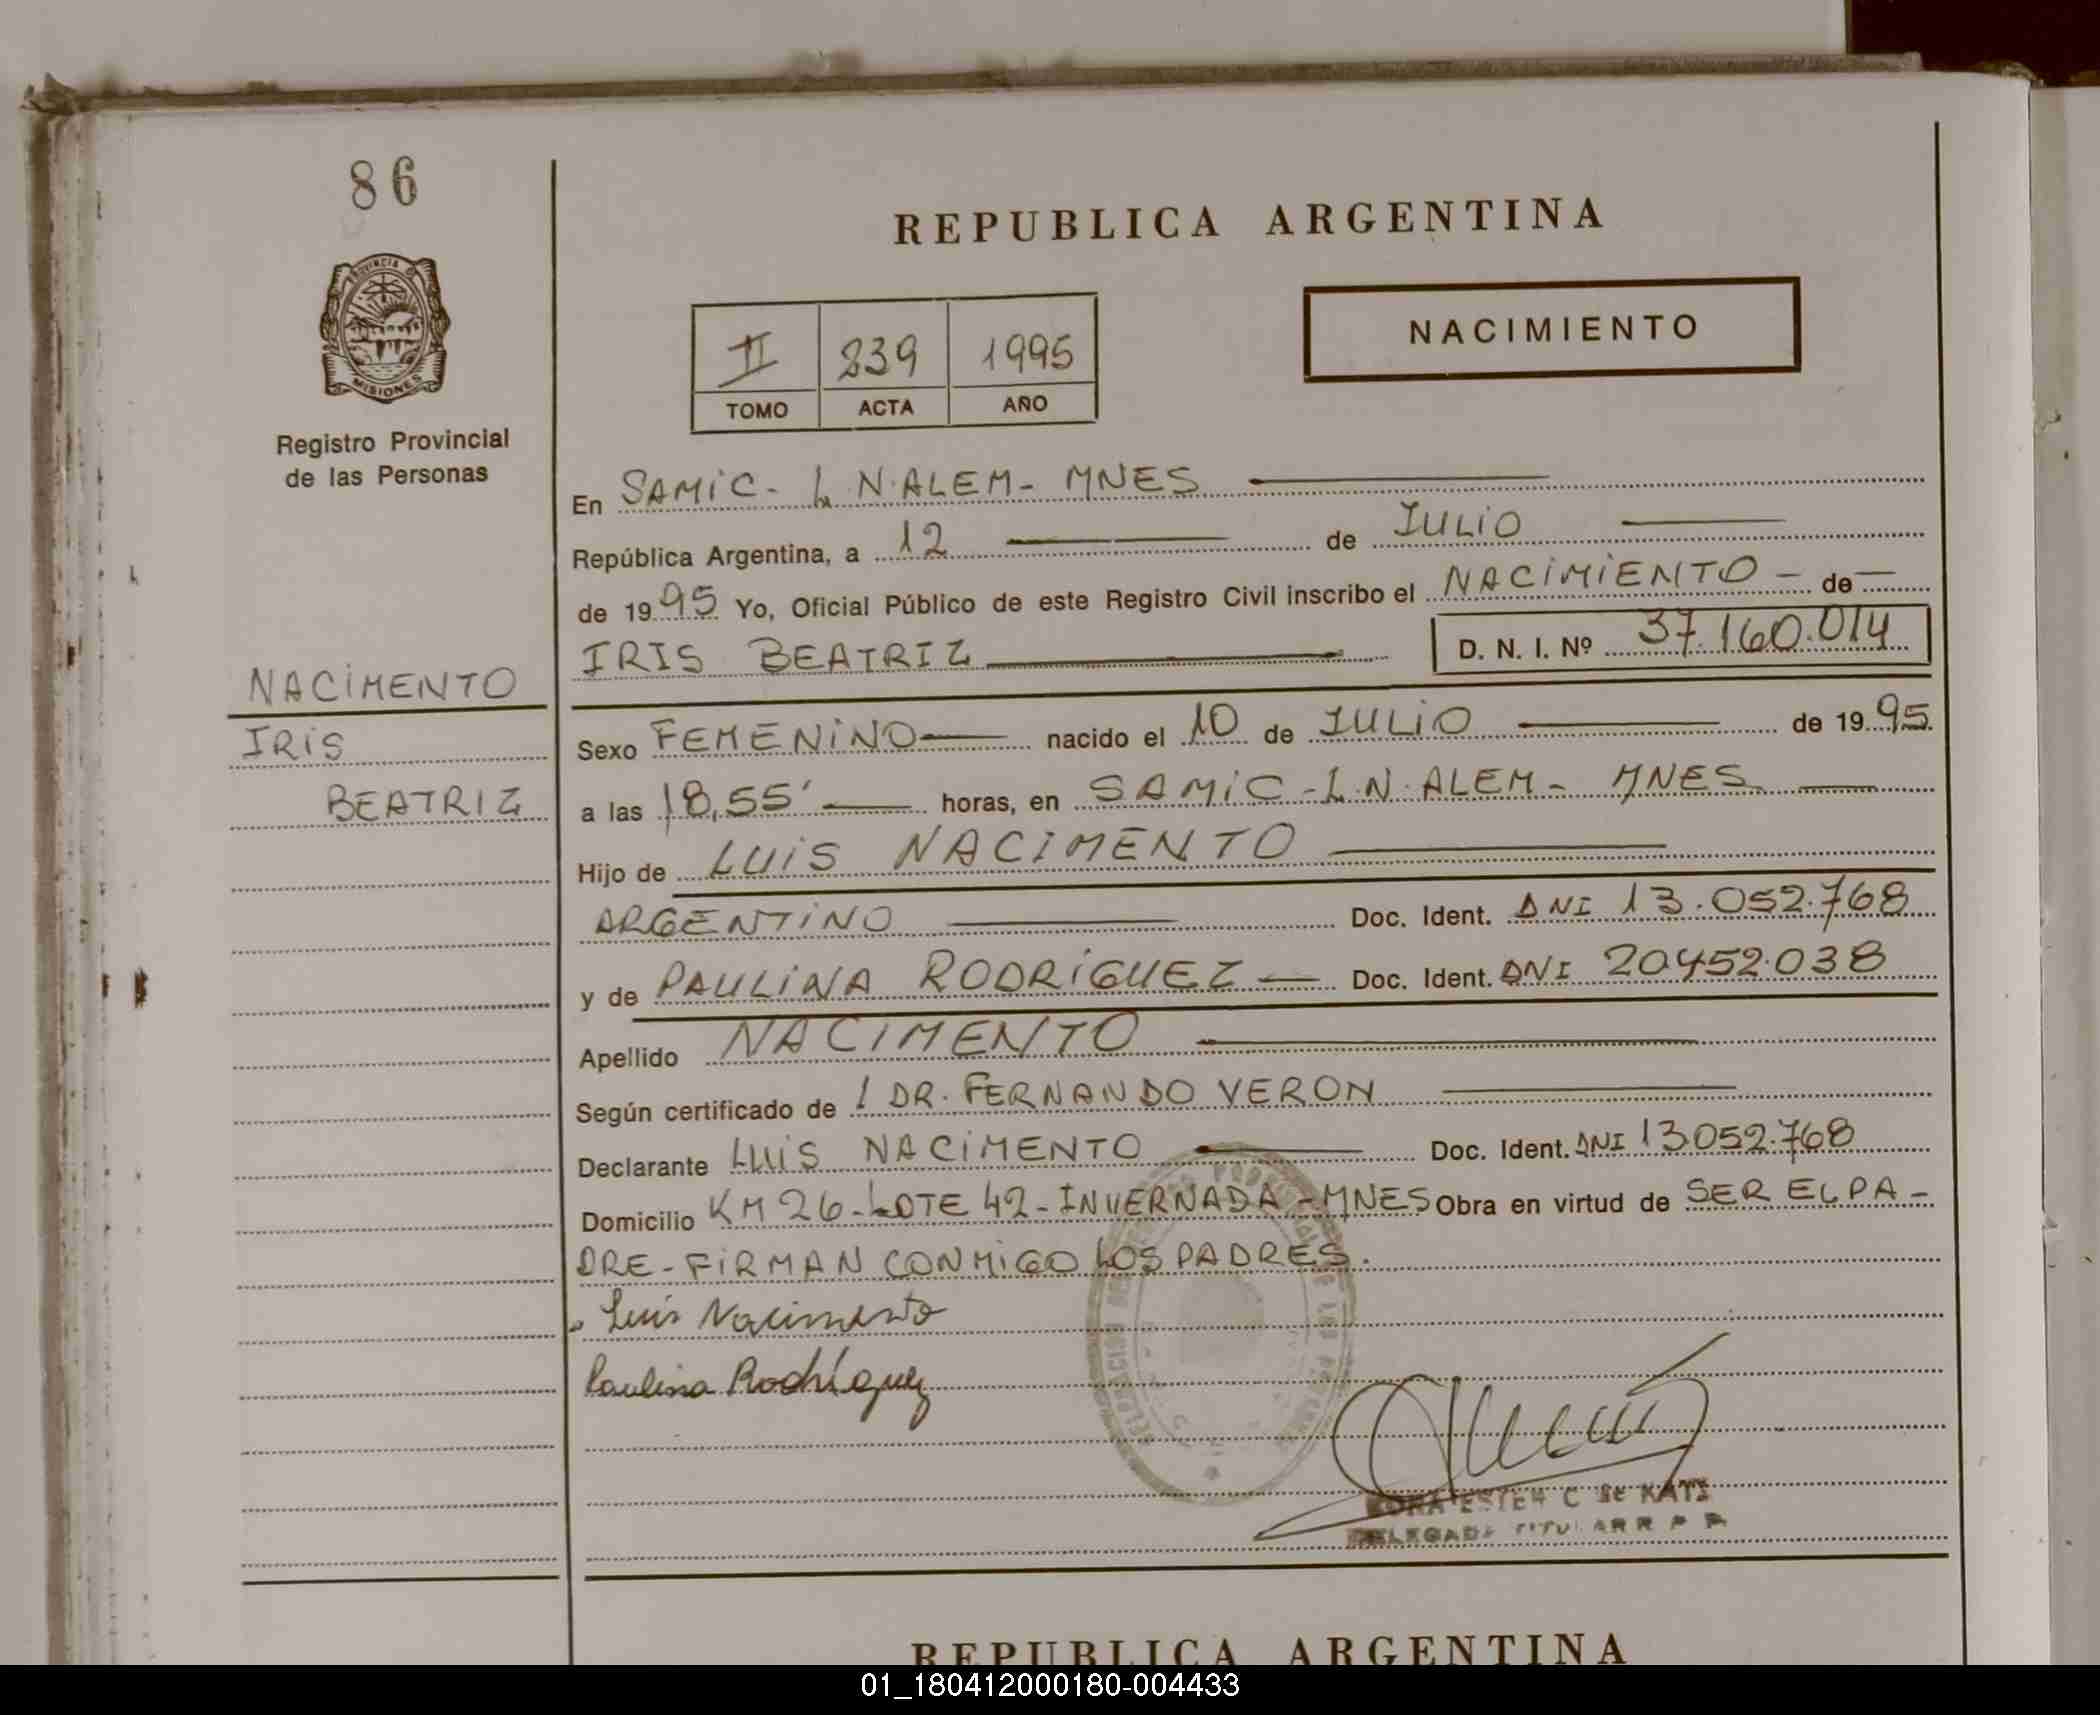 86
REPUBLICA ARGENTINA
PROVINCIA D
MISIONES
Registro Provincial
de las Personas
II 239 1995
TOMO ACTA AÑO
NACIMIENTO
En SAMIC - L.N.ALEM - MNES
República Argentina, a 12 de JULIO
de 1995 Yo, Oficial Público de este Registro Civil inscribo el NACIMIENTO - de
IRIS BEATRIZ D. N. I. Nº 37.160.014
NACIMENTO
IRIS
BEATRIZ
Sexo FEMENINO nacido el 10 de JULIO de 1995
a las 18,55' horas, en SAMIC - L.N. ALEM - MNES
Hijo de LUIS NACIMENTO
ARGENTINO Doc. Ident. DNI 13.052.768
y de PAULINA RODRIGUEZ Doc. Ident. DNI 20452.038
Apellido NACIMENTO
Según certificado de / DR. FERNANDO VERON
Declarante LUIS NACIMENTO Doc. Ident. DNI 13.052.768
Domicilio KM 26 - LOTE 42 - INVERNADA - MNES Obra en virtud de SER EL PA -
DRE - FIRMAN CONMIGO LOS PADRES.
Luis Nacimento
Paulina Rodríguez
ESTER C de KATZ
DELEGADA TITULAR R P P
REPUBLICA ARGENTINA
01_180412000180-004433